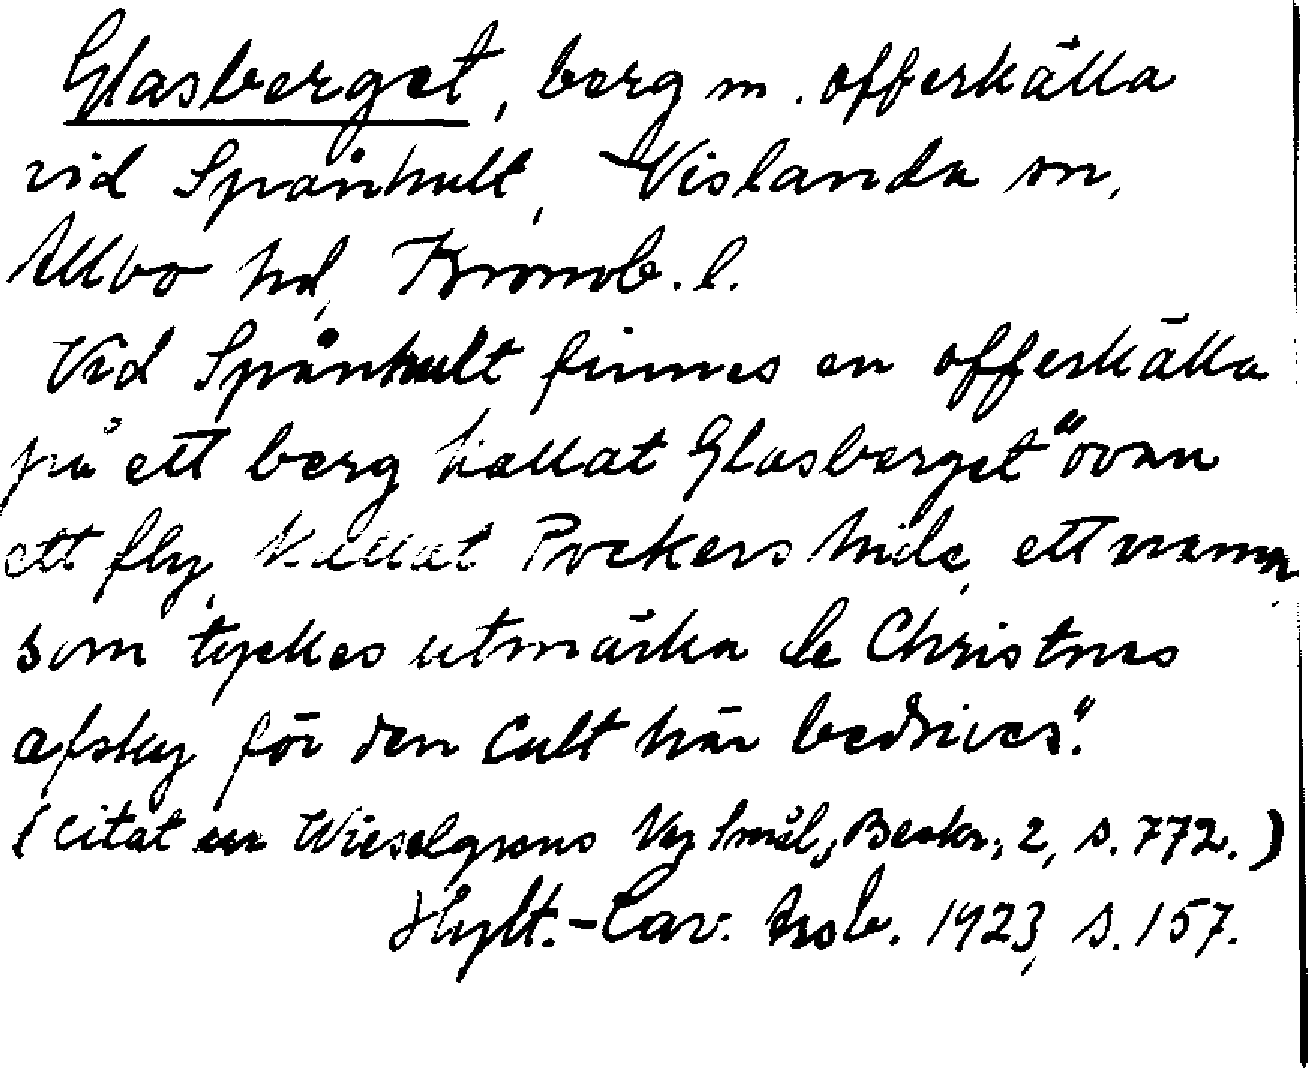 Glasberget, berg m. offerkälla
vid Spånhult, Vislanda sn,
Allbo hd, Kronob. l.
Vid Spånhult finnes en offerkälla
på ett berg kallat Glasberget "ovan
ett fly, kallat Pockers hide, ett namn
som tyckes utmärka de Christnes
afsky för den Cult här bedrives".
(citat ur Wieselgrens Ny Smål, Beskr., 2, s. 772.)
Hylt.-Cav. Årsb. 1923, s. 157.